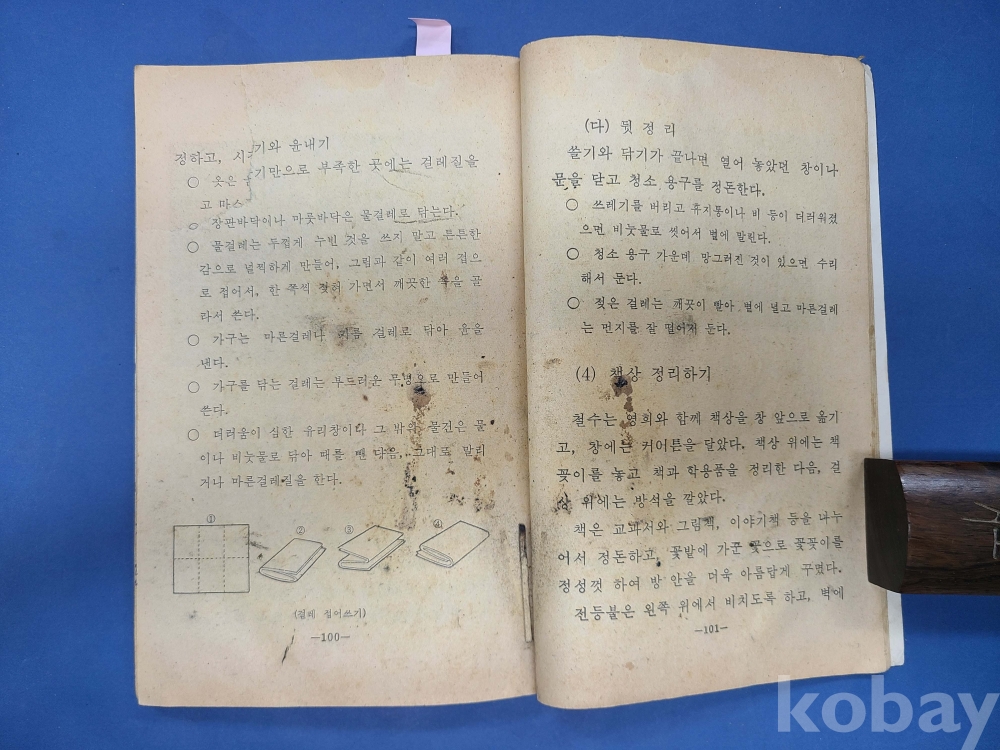 기와 윤내기
정하고, 시
기만으로 부족한 곳에는 걸레질을
○ 옷은
고 마스
○ 장판바닥이나 마룻바닥은 물걸레로 닦는다.
○ 물걸레는 두껍게 누빈 것을 쓰지 말고 튼튼한
감으로 널찍하게 만들어, 그림과 같이 여러 겹으
로 접어서, 한 쪽씩 젖혀 가면서 깨끗한 쪽을 골
라서 쓴다.
○ 가구는 마른걸레나 기름 걸레로 닦아 윤을
낸다.
○ 가구를 닦는 걸레는 부드러운 무명으로 만들어
쓴다.
○ 더러움이 심한 유리창이나 그 밖의 물건은 물
이나 비눗물로 닦아 때를 뺀 다음, 그대로 말리
거나 마른걸레질을 한다.
① ② ③ ④
(걸레 접어쓰기)
—100—
(다) 뒷 정 리
쓸기와 닦기가 끝나면 열어 놓았던 창이나
문을 닫고 청소 용구를 정돈한다.
○ 쓰레기를 버리고 휴지통이나 비 등이 더러워졌
으면 비눗물로 씻어서 볕에 말린다.
○ 청소 용구 가운데 망그러진 것이 있으면 수리
해서 둔다.
○ 젖은 걸레는 깨끗이 빨아 볕에 널고 마른걸레
는 먼지를 잘 떨어서 둔다.
(4) 책상 정리하기
철수는 영희와 함께 책상을 창 앞으로 옮기
고, 창에는 커어튼을 달았다. 책상 위에는 책
꽂이를 놓고 책과 학용품을 정리한 다음, 걸
상 위에는 방석을 깔았다.
책은 교과서와 그림책, 이야기책 등을 나누
어서 정돈하고, 꽃밭에 가꾼 꽃으로 꽃꽂이를
정성껏 하여 방 안을 더욱 아름답게 꾸몄다.
전등불은 왼쪽 위에서 비치도록 하고, 벽에
—101—
kobay